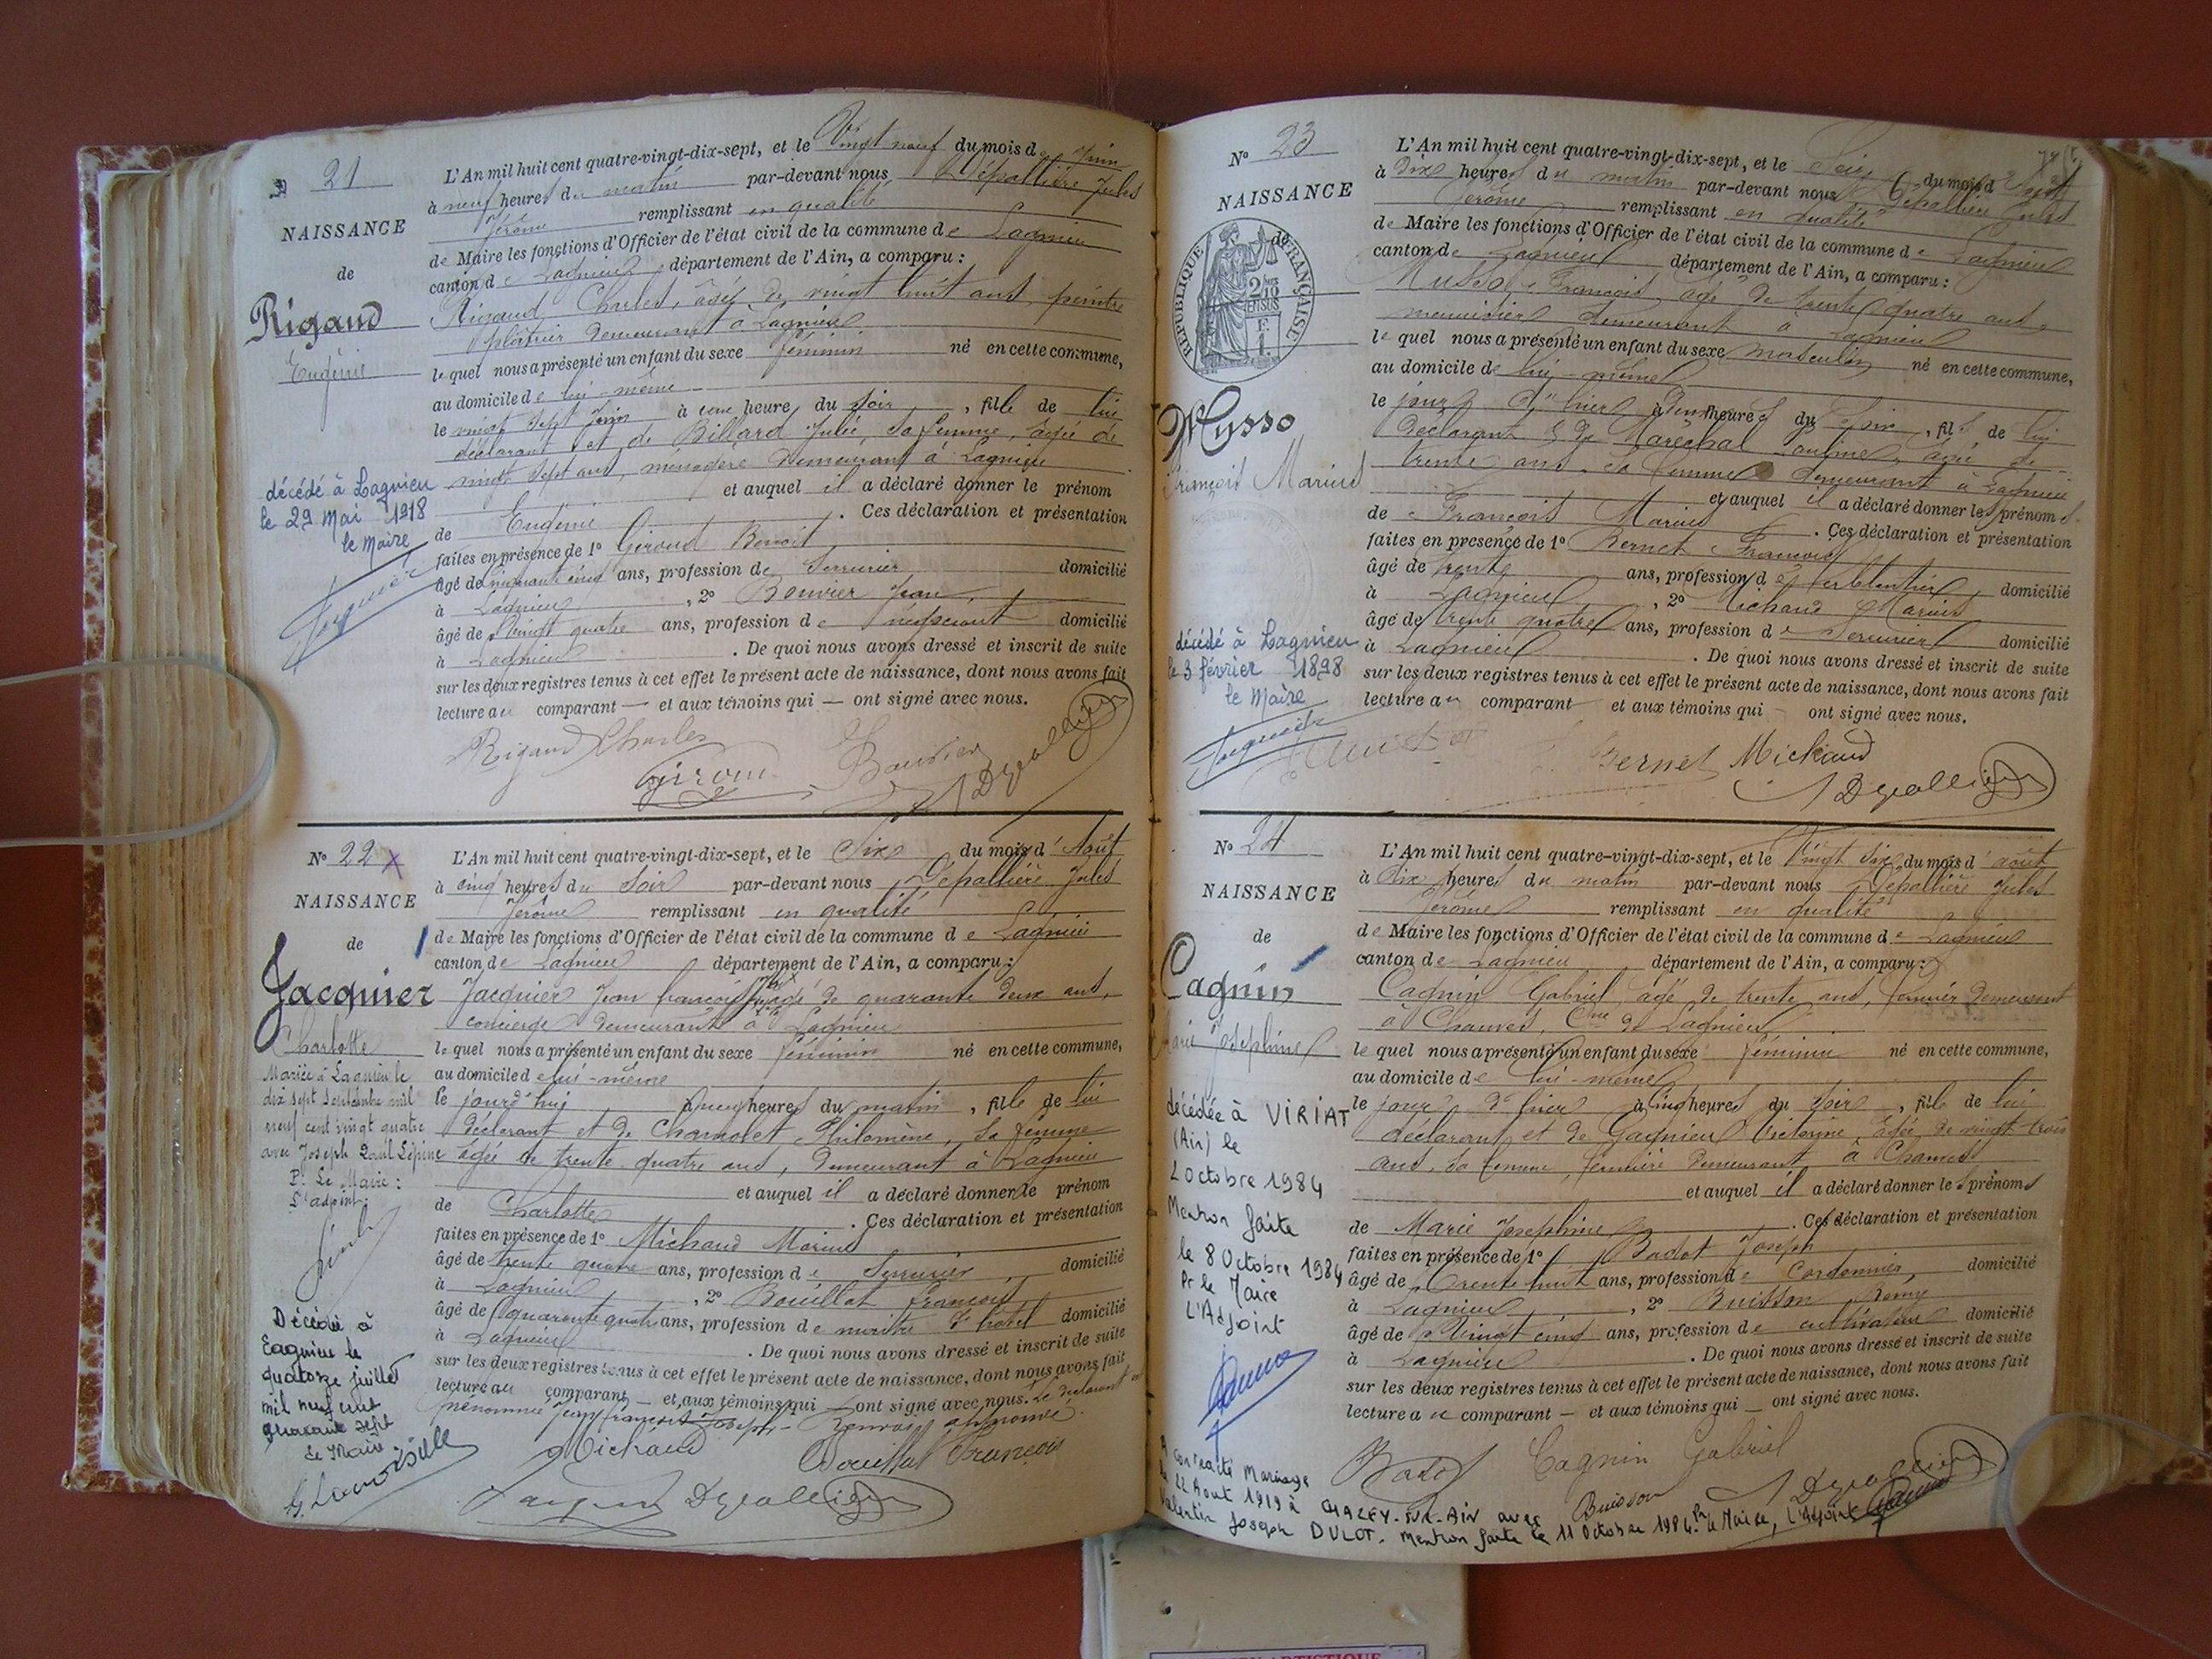 N° 21
NAISSANCE
de
Rigaud
Eugénie
décédé à Lagnieu
le 29 Mai 1918
le Maire
L'An mil huit cent quatre-vingt-dix-sept, et le Vingt neuf du mois de Juin
à neuf heures du matin par-devant nous Dépallière Jules
Jérôme remplissant en qualité
de Maire les fonctions d'Officier de l'état civil de la commune de Lagnieu
canton de Lagnieu, département de l'Ain, a comparu :
Rigaud Charles, âgé de vingt huit ans, peintre
plâtrier demeurant à Lagnieu
lequel nous a présenté un enfant du sexe féminin né en cette commune,
au domicile de lui-même
le vingt sept Juin à une heure du soir, fille de lui
déclarant et de Billard Julie, sa femme, âgée de
vingt sept ans, ménagère demeurant à Lagnieu
et auquel il a déclaré donner le prénom
de Eugénie. Ces déclaration et présentation
faites en présence de 1° Giroud Benoit
âgé de cinquante cinq ans, profession de Serrurier domicilié
à Lagnieu, 2° Bouvier Jean
âgé de vingt quatre ans, profession de négociant domicilié
à Lagnieu. De quoi nous avons dressé et inscrit de suite
sur les deux registres tenus à cet effet le présent acte de naissance, dont nous avons fait
lecture au comparant — et aux témoins qui — ont signé avec nous.
Rigaud Charles
Giroud Bouvier
N° 22
NAISSANCE
de
Jacquier
Charlotte
Mariée à Lagnieu le
dix sept Septembre mil
neuf cent vingt quatre
avec Joseph Paul Lépine
Pr Le Maire :
L'adjoint :
Décédée à
Lagnieu le
quatorze juillet
mil neuf cent
quarante sept
Le Maire
L'An mil huit cent quatre-vingt-dix-sept, et le Six du mois d'Août
à cinq heures du soir par-devant nous Dépallière Jules
Jérôme remplissant en qualité
de Maire les fonctions d'Officier de l'état civil de la commune de Lagnieu
canton de Lagnieu département de l'Ain, a comparu :
Jacquier Jean François âgé de quarante deux ans,
concierge demeurant à Lagnieu
lequel nous a présenté un enfant du sexe féminin né en cette commune,
au domicile de lui-même
le jourd'hui à neuf heures du matin, fille de lui
déclarant et de Charnolet Philomène, sa femme
âgée de trente quatre ans, demeurant à Lagnieu
et auquel il a déclaré donner le prénom
de Charlotte. Ces déclaration et présentation
faites en présence de 1° Michaud Marius
âgé de trente quatre ans, profession de Serrurier, domicilié
à Lagnieu, 2° Bouillat François
âgé de quarante quatre ans, profession de maître d'hôtel domicilié
à Lagnieu. De quoi nous avons dressé et inscrit de suite
sur les deux registres tenus à cet effet le présent acte de naissance, dont nous avons fait
lecture au comparant — et aux témoins qui — ont signé avec nous. Le déclarant
prénommé Jean François Joseph - Renvoi approuvé.
Michaud Bouillat François
N° 23
NAISSANCE
de
RÉPUBLIQUE FRANÇAISE
Musso
François Marius
décédé à Lagnieu
le 3 février 1898
le Maire
L'An mil huit cent quatre-vingt-dix-sept, et le Seize du mois d'Août
à Dix heures du matin par-devant nous Dépallière Jules
Jérôme remplissant en qualité
de Maire les fonctions d'Officier de l'état civil de la commune de Lagnieu
canton de Lagnieu département de l'Ain, a comparu :
Musso François, âgé de trente quatre ans
menuisier demeurant à Lagnieu
lequel nous a présenté un enfant du sexe masculin né en cette commune,
au domicile de lui-même
le jour d'hier à heures du soir, fils de lui
déclarant & de Maréchal âgée de
trente ans, sa femme demeurant à Lagnieu
et auquel il a déclaré donner les prénoms
de François Marius. Ces déclaration et présentation
faites en présence de 1° Bernet François
âgé de trente ans, profession de ferblantier domicilié
à Lagnieu, 2° Michaud Marius
âgé de trente quatre ans, profession de Serrurier domicilié
à Lagnieu. De quoi nous avons dressé et inscrit de suite
sur les deux registres tenus à cet effet le présent acte de naissance, dont nous avons fait
lecture au comparant et aux témoins qui — ont signé avec nous.
Bernet Michaud
N° 24
NAISSANCE
de
Cagnin
Marie Joséphine
décédée à VIRIAT
(Ain) le
2 octobre 1984
Mention faite
le 8 Octobre 1984
Pr le Maire
L'Adjoint
L'An mil huit cent quatre-vingt-dix-sept, et le Vingt six du mois d'août
à Dix heures du matin par-devant nous Dépallière Jules
Jérôme remplissant en qualité
de Maire les fonctions d'Officier de l'état civil de la commune de Lagnieu
canton de Lagnieu département de l'Ain, a comparu :
Cagnin Gabriel, âgé de trente ans, fermier demeurant
à Chamves, Cne de Lagnieu
lequel nous a présenté un enfant du sexe féminin né en cette commune,
au domicile de lui-même
le jour d'hier à cinq heures du soir, fille de lui
déclarant et de Gagnieu Victorine, âgée de vingt trois
ans, sa femme, fermière demeurant à
et auquel il a déclaré donner les prénoms
de Marie Joséphine. Ces déclaration et présentation
faites en présence de 1° Badot Joseph
âgé de trente huit ans, profession de Cordonnier, domicilié
à Lagnieu, 2° Buisson Rémy
âgé de Vingt cinq ans, profession de cultivateur domicilié
à Lagnieu. De quoi nous avons dressé et inscrit de suite
sur les deux registres tenus à cet effet le présent acte de naissance, dont nous avons fait
lecture au comparant — et aux témoins qui — ont signé avec nous.
Badot Cagnin Gabriel
Buisson
A contracté Mariage
le 22 Août 1919 à CHAZEY-SUR-AIN avec
Valentin Joseph DULOT. Mention faite le 11 Octobre 1984. Pr le Maire, L'Adjoint